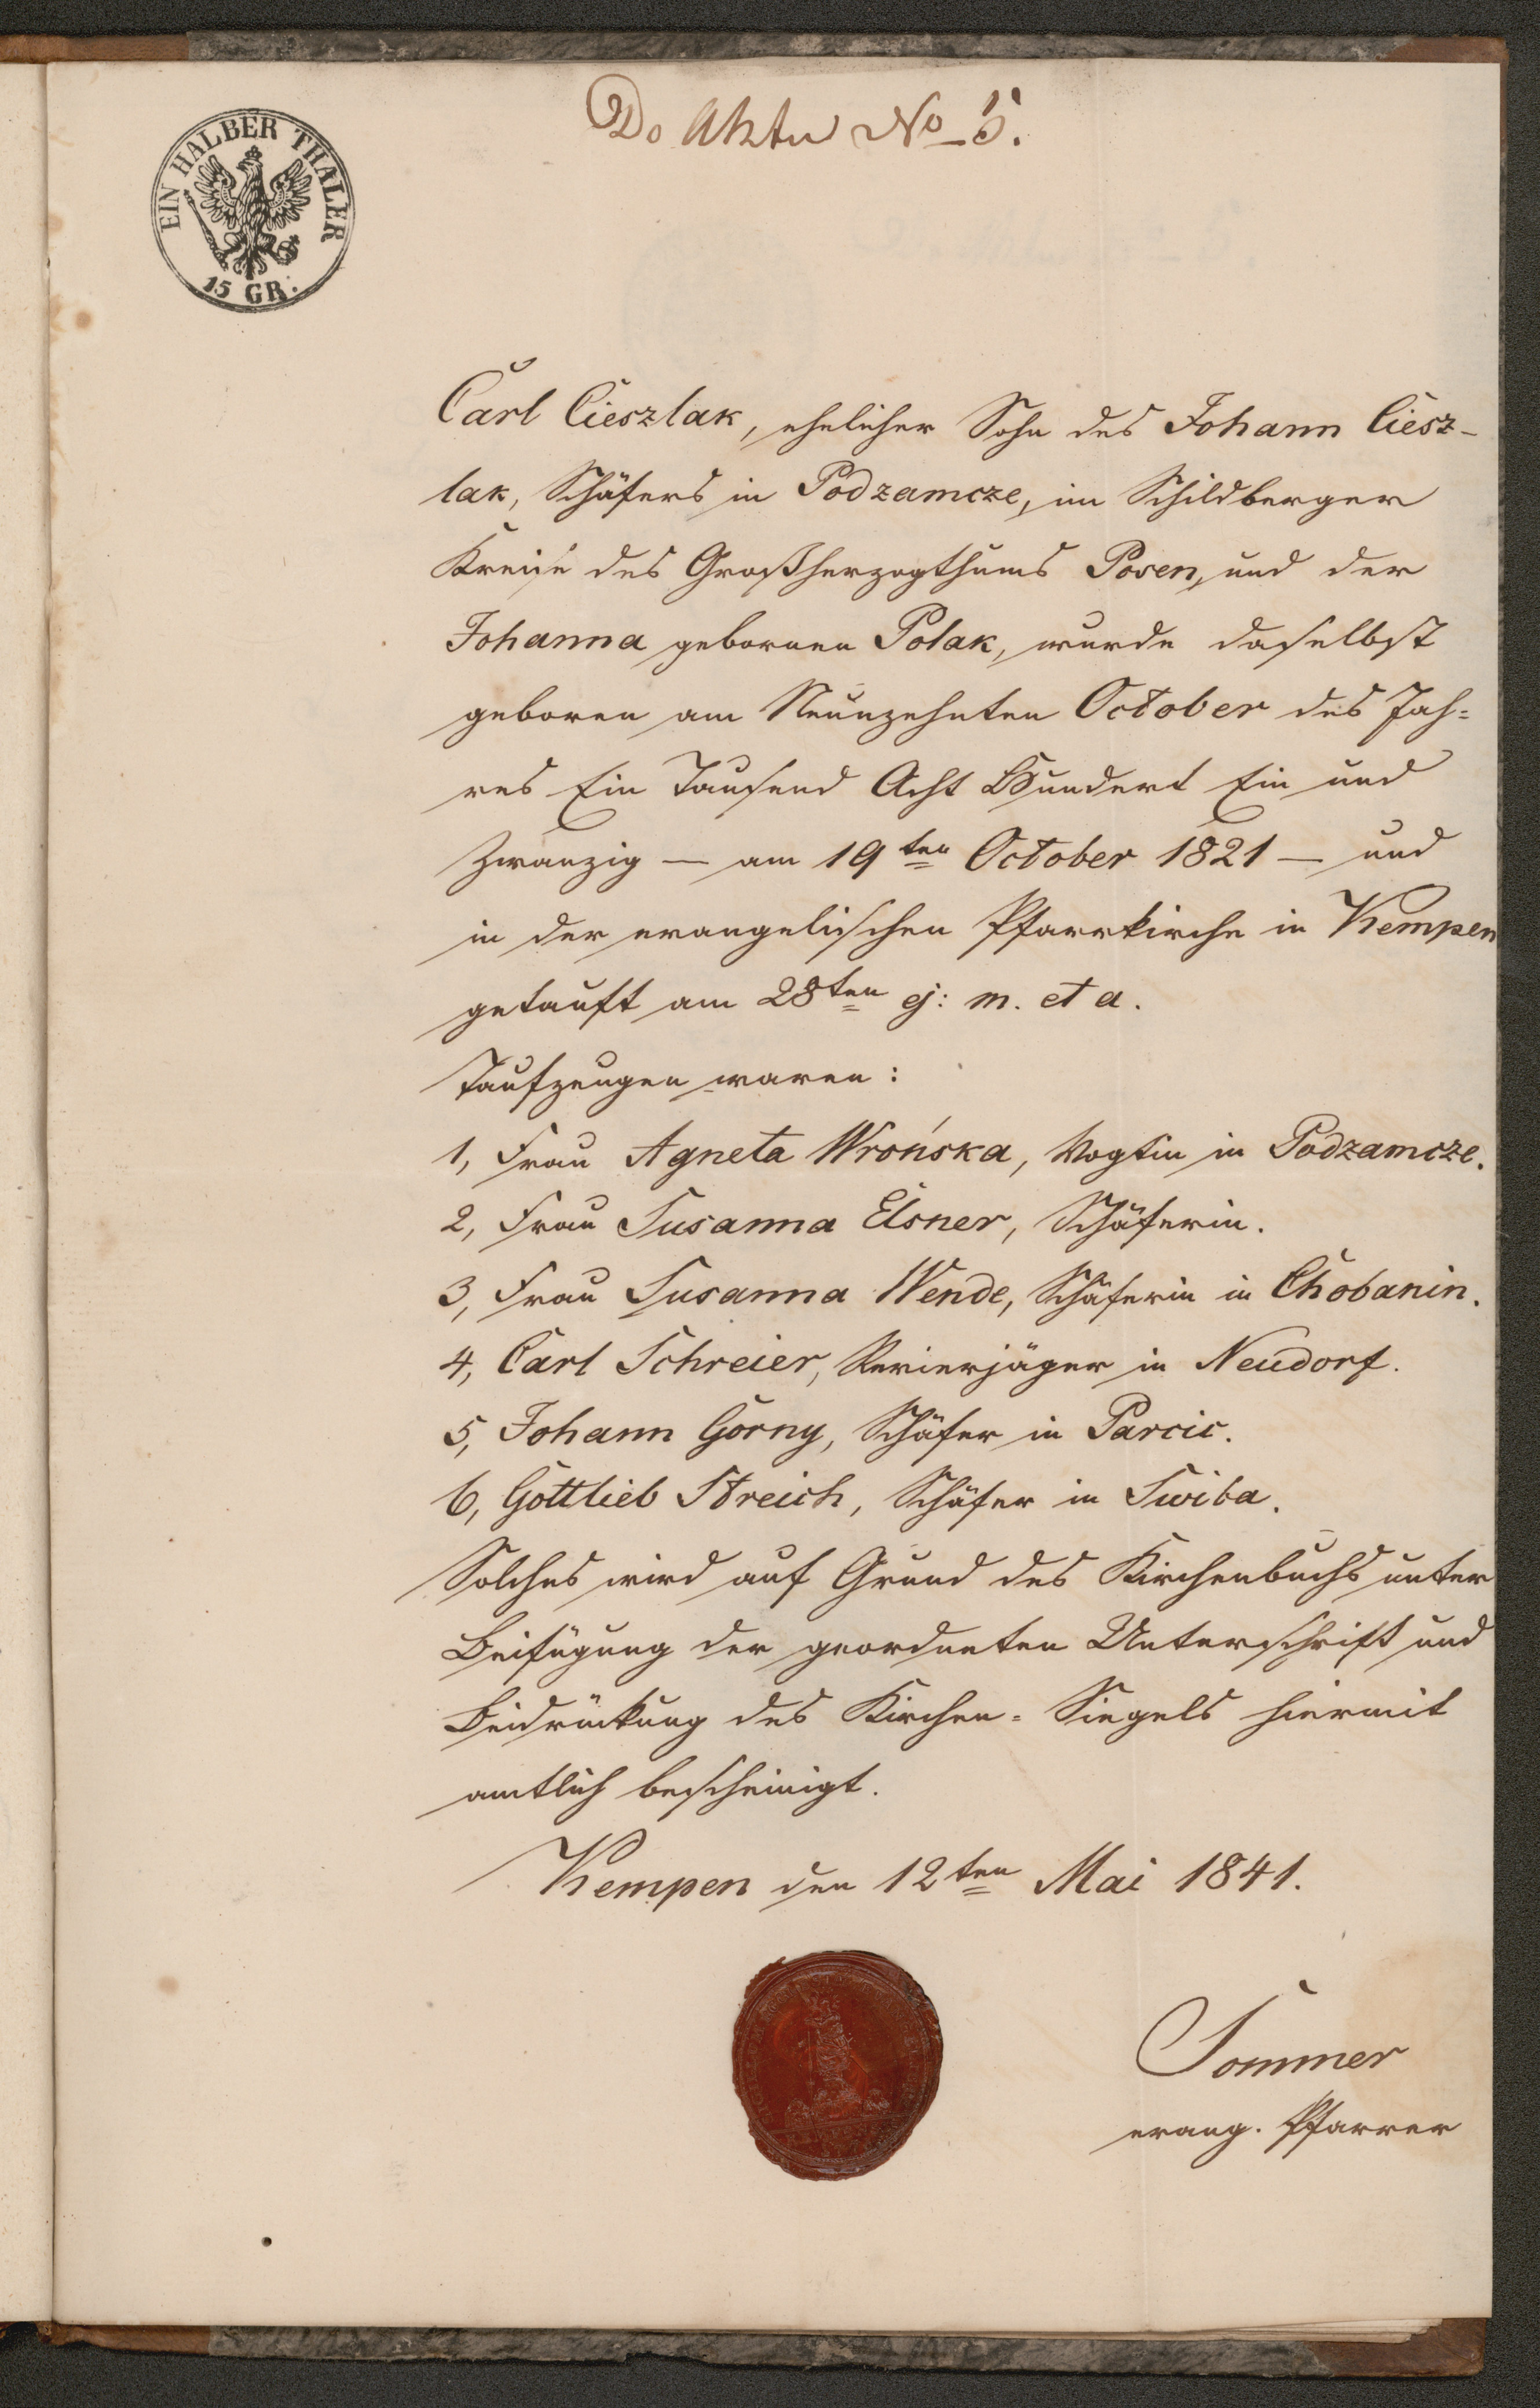 Do Aktu No 5.
EIN HALBER THALER
15 GR.
Carl Cieszlak, ehelicher Sohn des Johann Ciesz-
lak, Schäfers in Podzamcze, im Schildberger
Kreise des Großherzogthums Posen, und der
Johanna gebornen Polak, wurde daselbst
geboren am Neunzehnten October des Jah=
res Ein Tausend Acht Hundert Ein und
Zwanzig — am 19ten October 1821 — und
in der evangelischen Pfarrkirche in Kempen
getauft am 28ten ej: m. et a.
Taufzeugen waren:
1, Frau Agneta Wrońska, Vogtin in Podzamcze.
2, Frau Susanna Elsner, Schäferin.
3, Frau Susanna Wende, Schäferin in Chobanin.
4, Carl Schreier, Revierjäger in Neudorf.
5, Johann Górny, Schäfer in Parcic.
6, Gottlieb Streich, Schäfer in Swiba.
Solches wird auf Grund des Kirchenbuchs unter
Beifügung der geordneten Unterschrift und
Beidrückung des Kirchen=Siegels hiermit
amtlich bescheinigt.
Kempen den 12ten Mai 1841.
Sommer
evang. Pfarrer